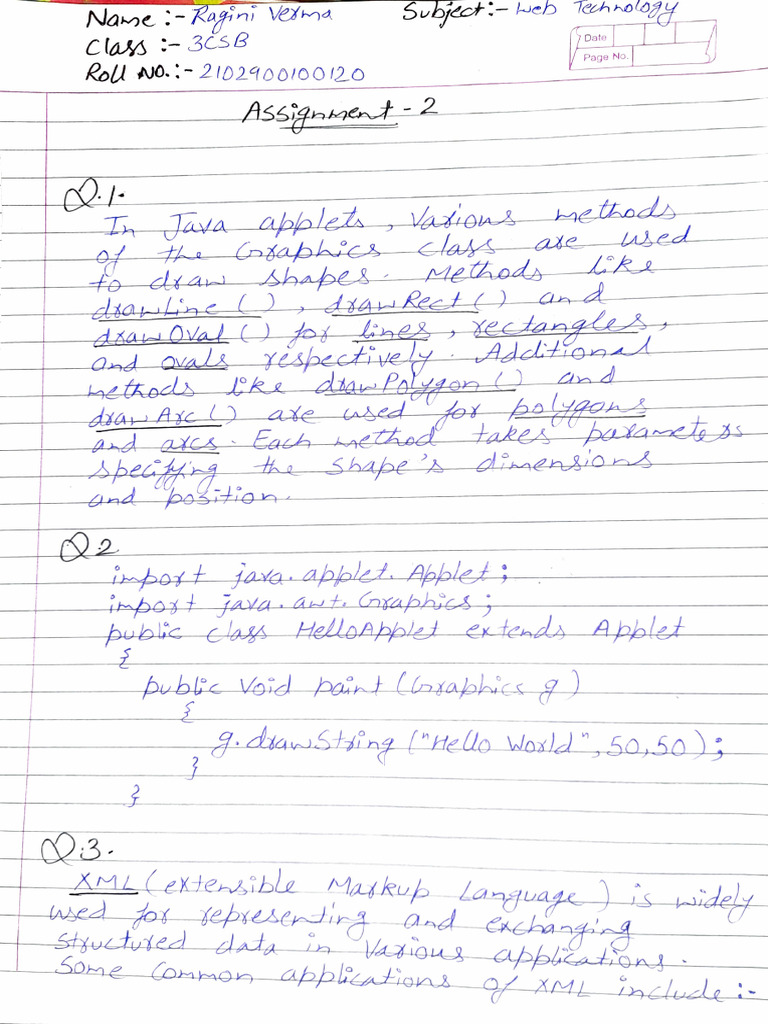 Name :- Ragini Verma Subject:- Web Technology
Class :- 3CSB
Date
Roll No. :- 2102900100120
Page No.
Assignment - 2
Q.1.
In Java applets, Various methods
of the Graphics class are used
to draw shapes. Methods like
drawLine (), drawRect () and
drawOval () for lines, rectangles,
and ovals respectively. Additional
methods like drawPolygon () and
drawArc () are used for polygons
and arcs. Each method takes parameters
specifying the shape's dimensions
and position.
Q.2
import java.applet.Applet;
import java.awt.Graphics;
public class HelloApplet extends Applet
{
public void paint (Graphics g)
{
g.drawString ("Hello World", 50,50);
}
}
Q.3.
XML (extensible Markup Language) is widely
used for representing and exchanging
structured data in various applications.
Some common applications of XML include:-